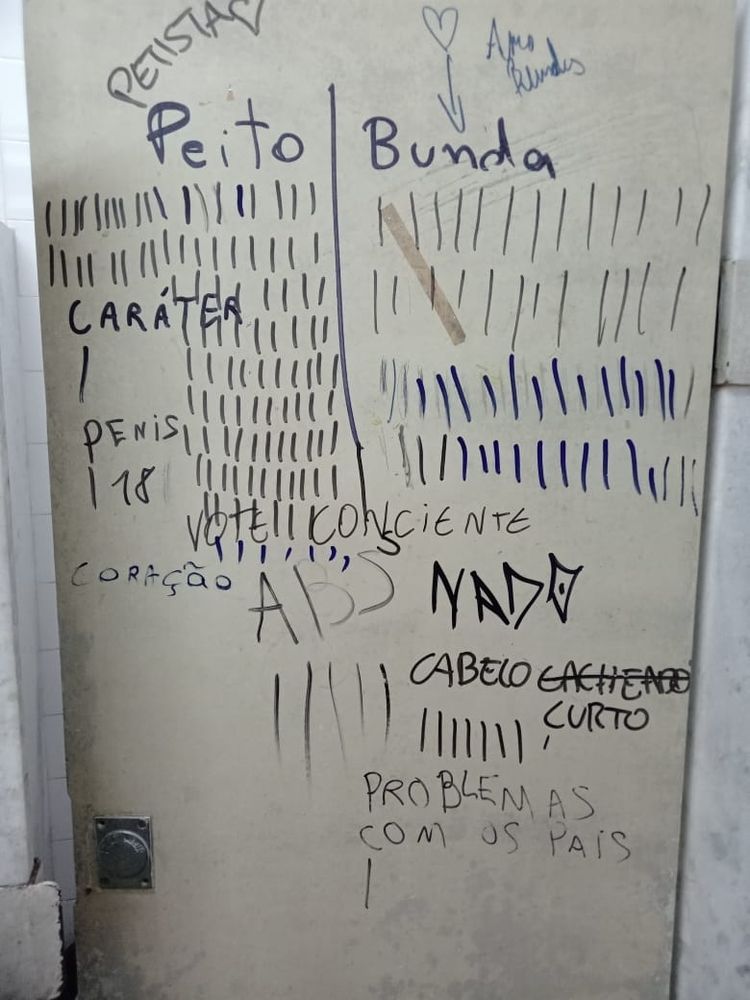 PETISTA
Amo
Bundas
Peito
Bunda
CARÁTER
PENIS
18
VOTE!! CONSCIENTE
CORAÇÃO
ABS
NADO
CABELO CACHEADO
CURTO
PROBLEMAS
COM OS PAIS